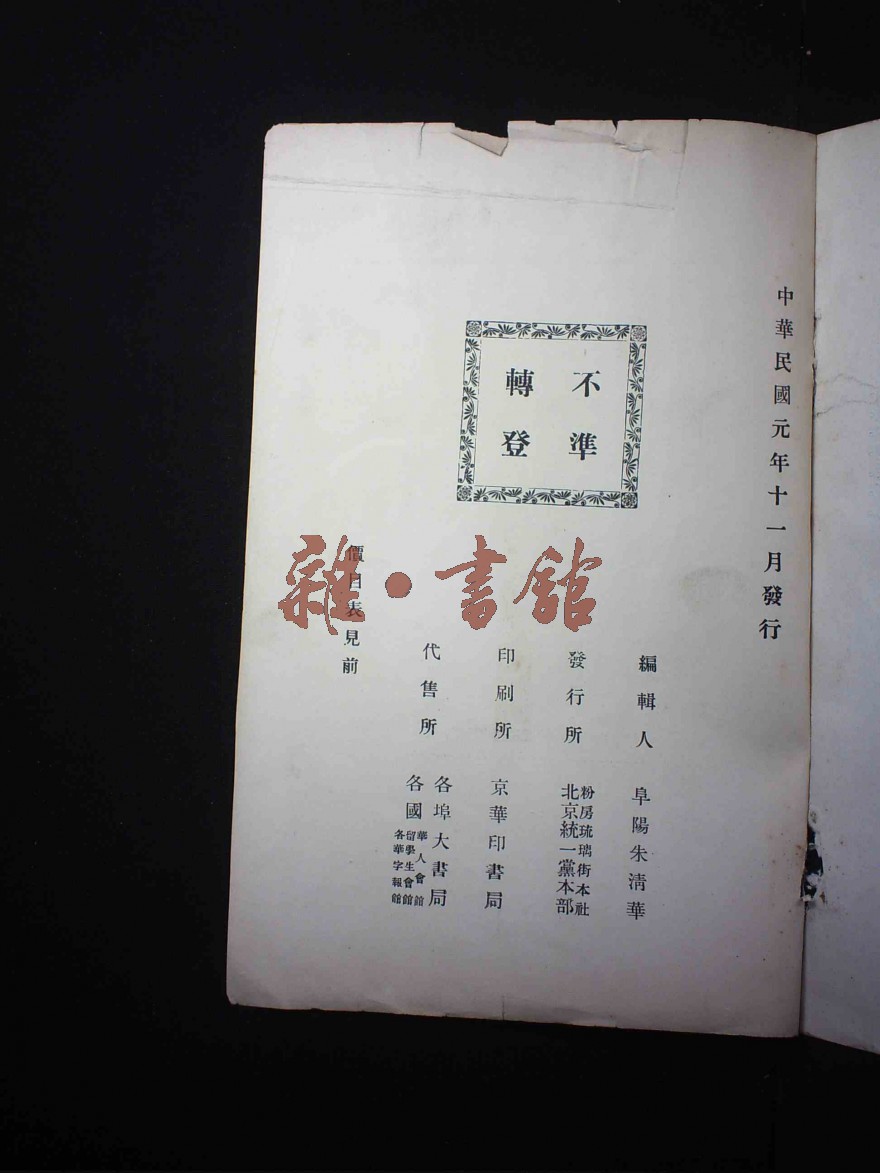 中華民國元年十一月發行
不準
轉登
編輯人 阜陽朱淸華
發行所 粉房琉璃街本社
北京統一黨本部
印刷所 京華印書局
代售所 各埠大書局
各國 華人會館
留學生會館
各華字報館
價目表見前
雜·書館